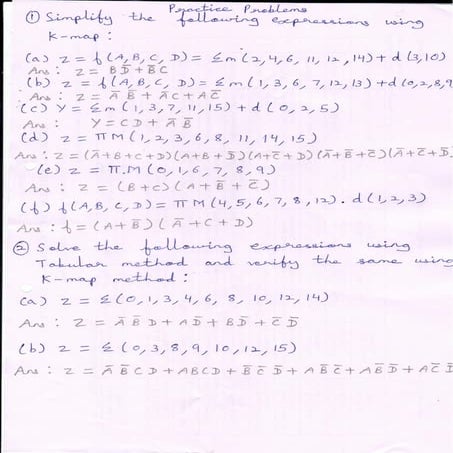 Practice Problems
① Simplify the following expressions using
K-map:
(a) z = f(A,B,C,D) = Σm(2,4,6,11,12,14)+d(3,10)
Ans: z = BD̅+B̅C
(b) z = f(A,B,C,D) = Σm(1,3,6,7,12,13)+d(0,2,8,9
Ans: z = A̅ B̅ + A̅C + AC̅
(c) Y = Σm(1,3,7,11,15)+d(0,2,5)
Ans: Y = CD + A̅ B̅
(d) z = πM(1,2,3,6,8,11,14,15)
Ans: z = (A̅+B+C+D)(A+B+D̅)(A+C̅+D)(A̅+B̅+C̅)(A̅+C̅+D̅
(e) z = π.M(0,1,6,7,8,9)
Ans: z = (B+C)(A+B̅+C̅)
(f) f(A,B,C,D) = πM(4,5,6,7,8,12).d(1,2,3)
Ans: f = (A+B̅)(A̅+C+D)
② Solve the following expressions using
Tabular method and verify the same using
K-map method:
(a) z = Σ(0,1,3,4,6,8,10,12,14)
Ans: z = A̅ B̅ D + AD̅ + BD̅ + C̅ D̅
(b) z = Σ(0,3,8,9,10,12,15)
Ans: z = A̅ B̅ C D + A B C D + B̅ C̅ D̅ + A B̅ C̅ + A B̅ D̅ + A C̅ D̅